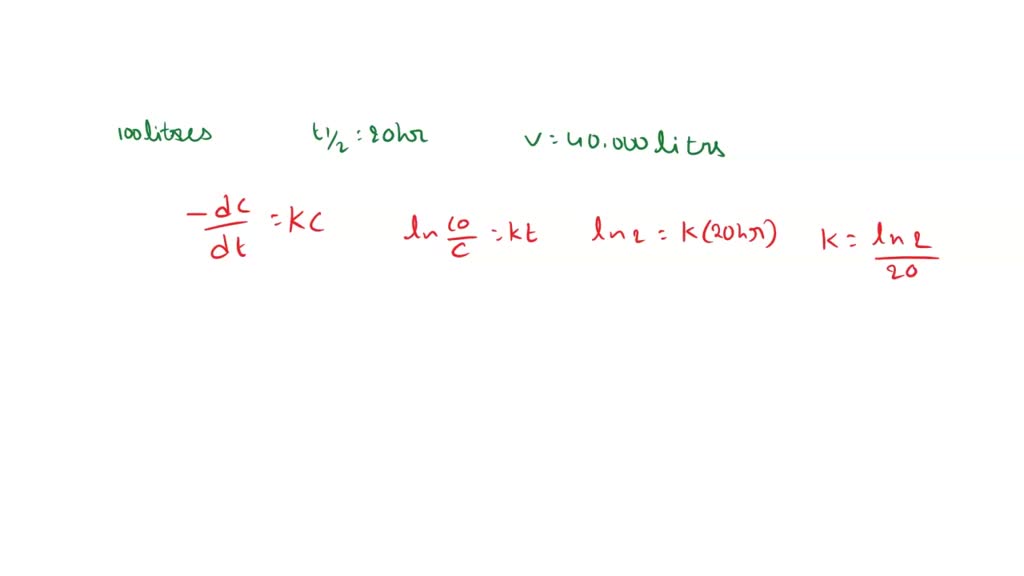 100 litres t 1/2 = 20hr V = 40.000 litrs
-dc/dt = KC ln co/c = kt ln 2 = K(20hr) K = ln 2/20